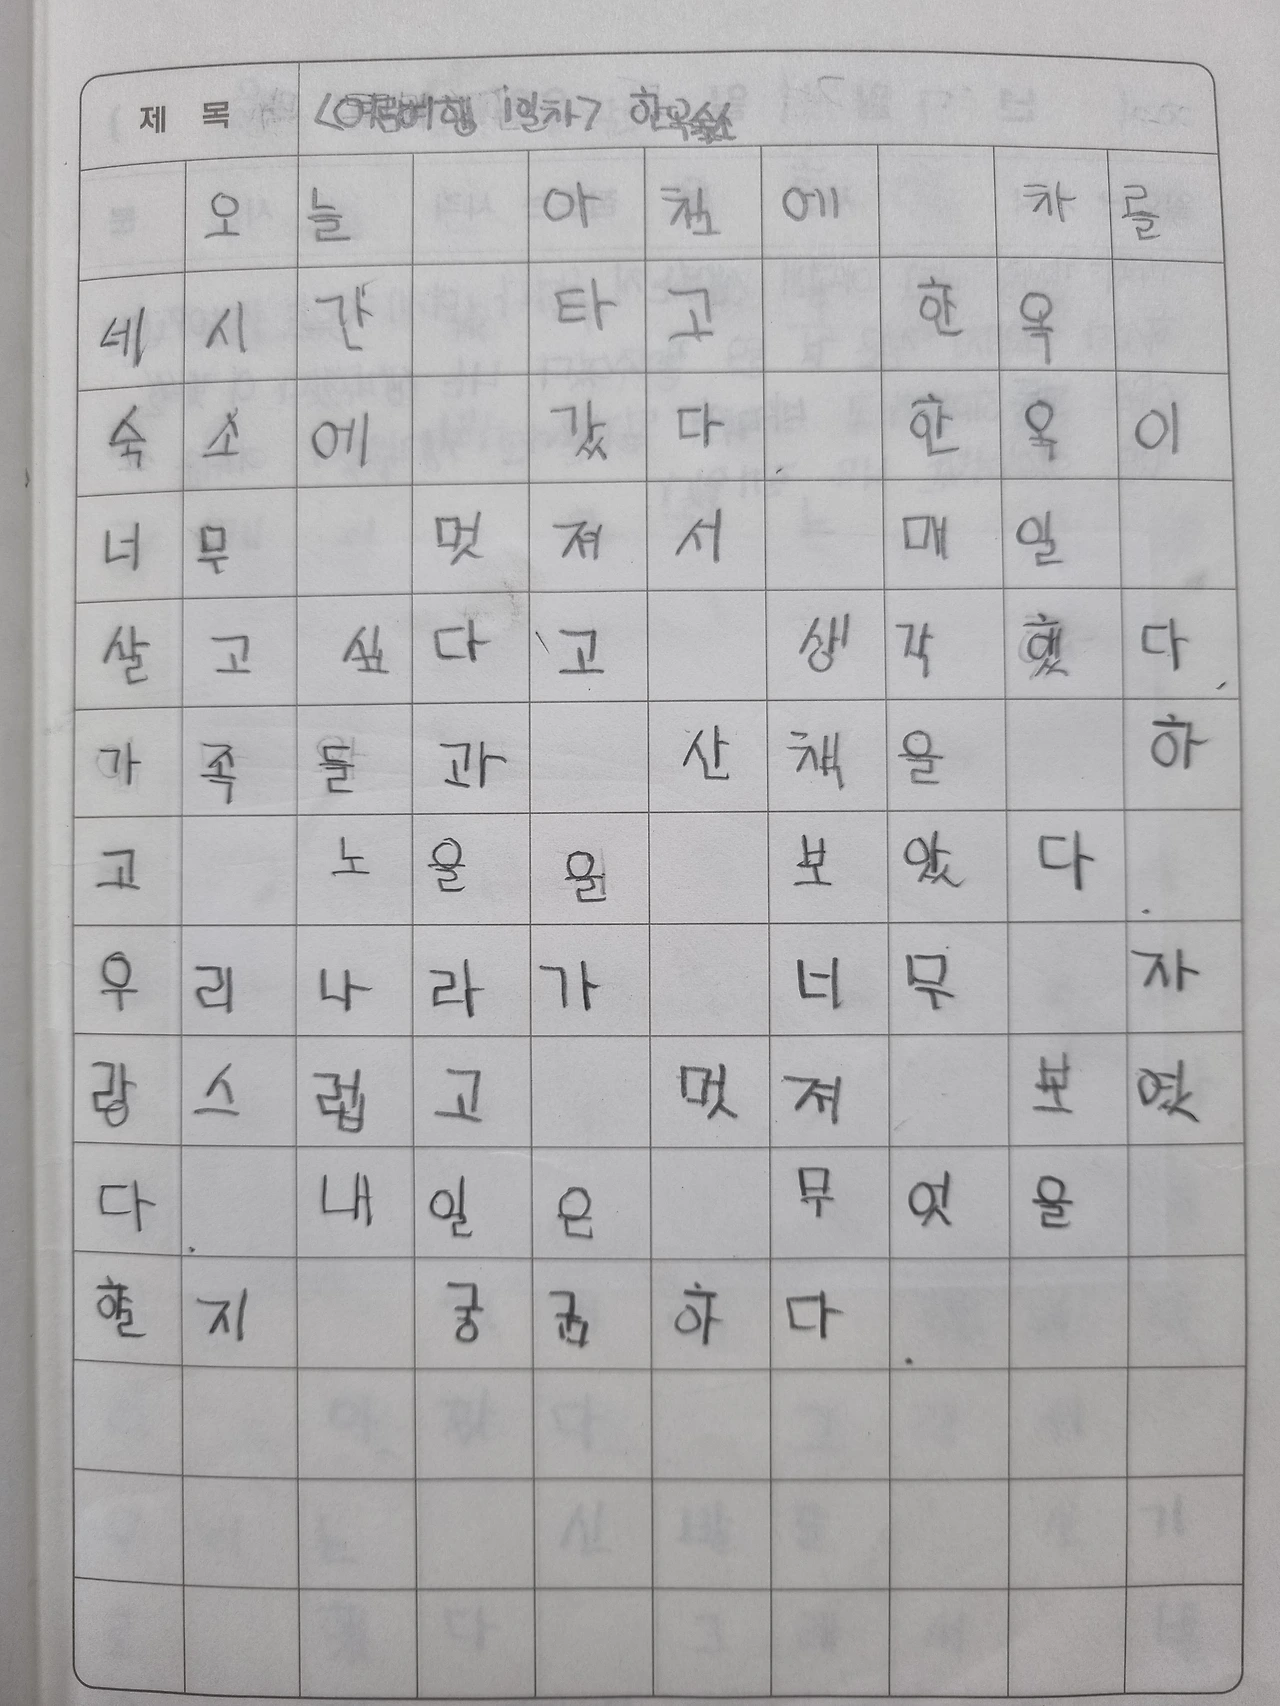 제 목 <여름여행 1일차> 한옥숙소
오늘 아침에 차를
세시간 타고 한옥
숙소에 갔다. 한옥이
너무 멋져서 매일
살고싶다고 생각했다.
가족들과 산책을 하
고 노을을 보았다.
우리나라가 너무 자
랑스럽고 멋져 보였
다. 내일은 무엇을
할지 궁금하다.